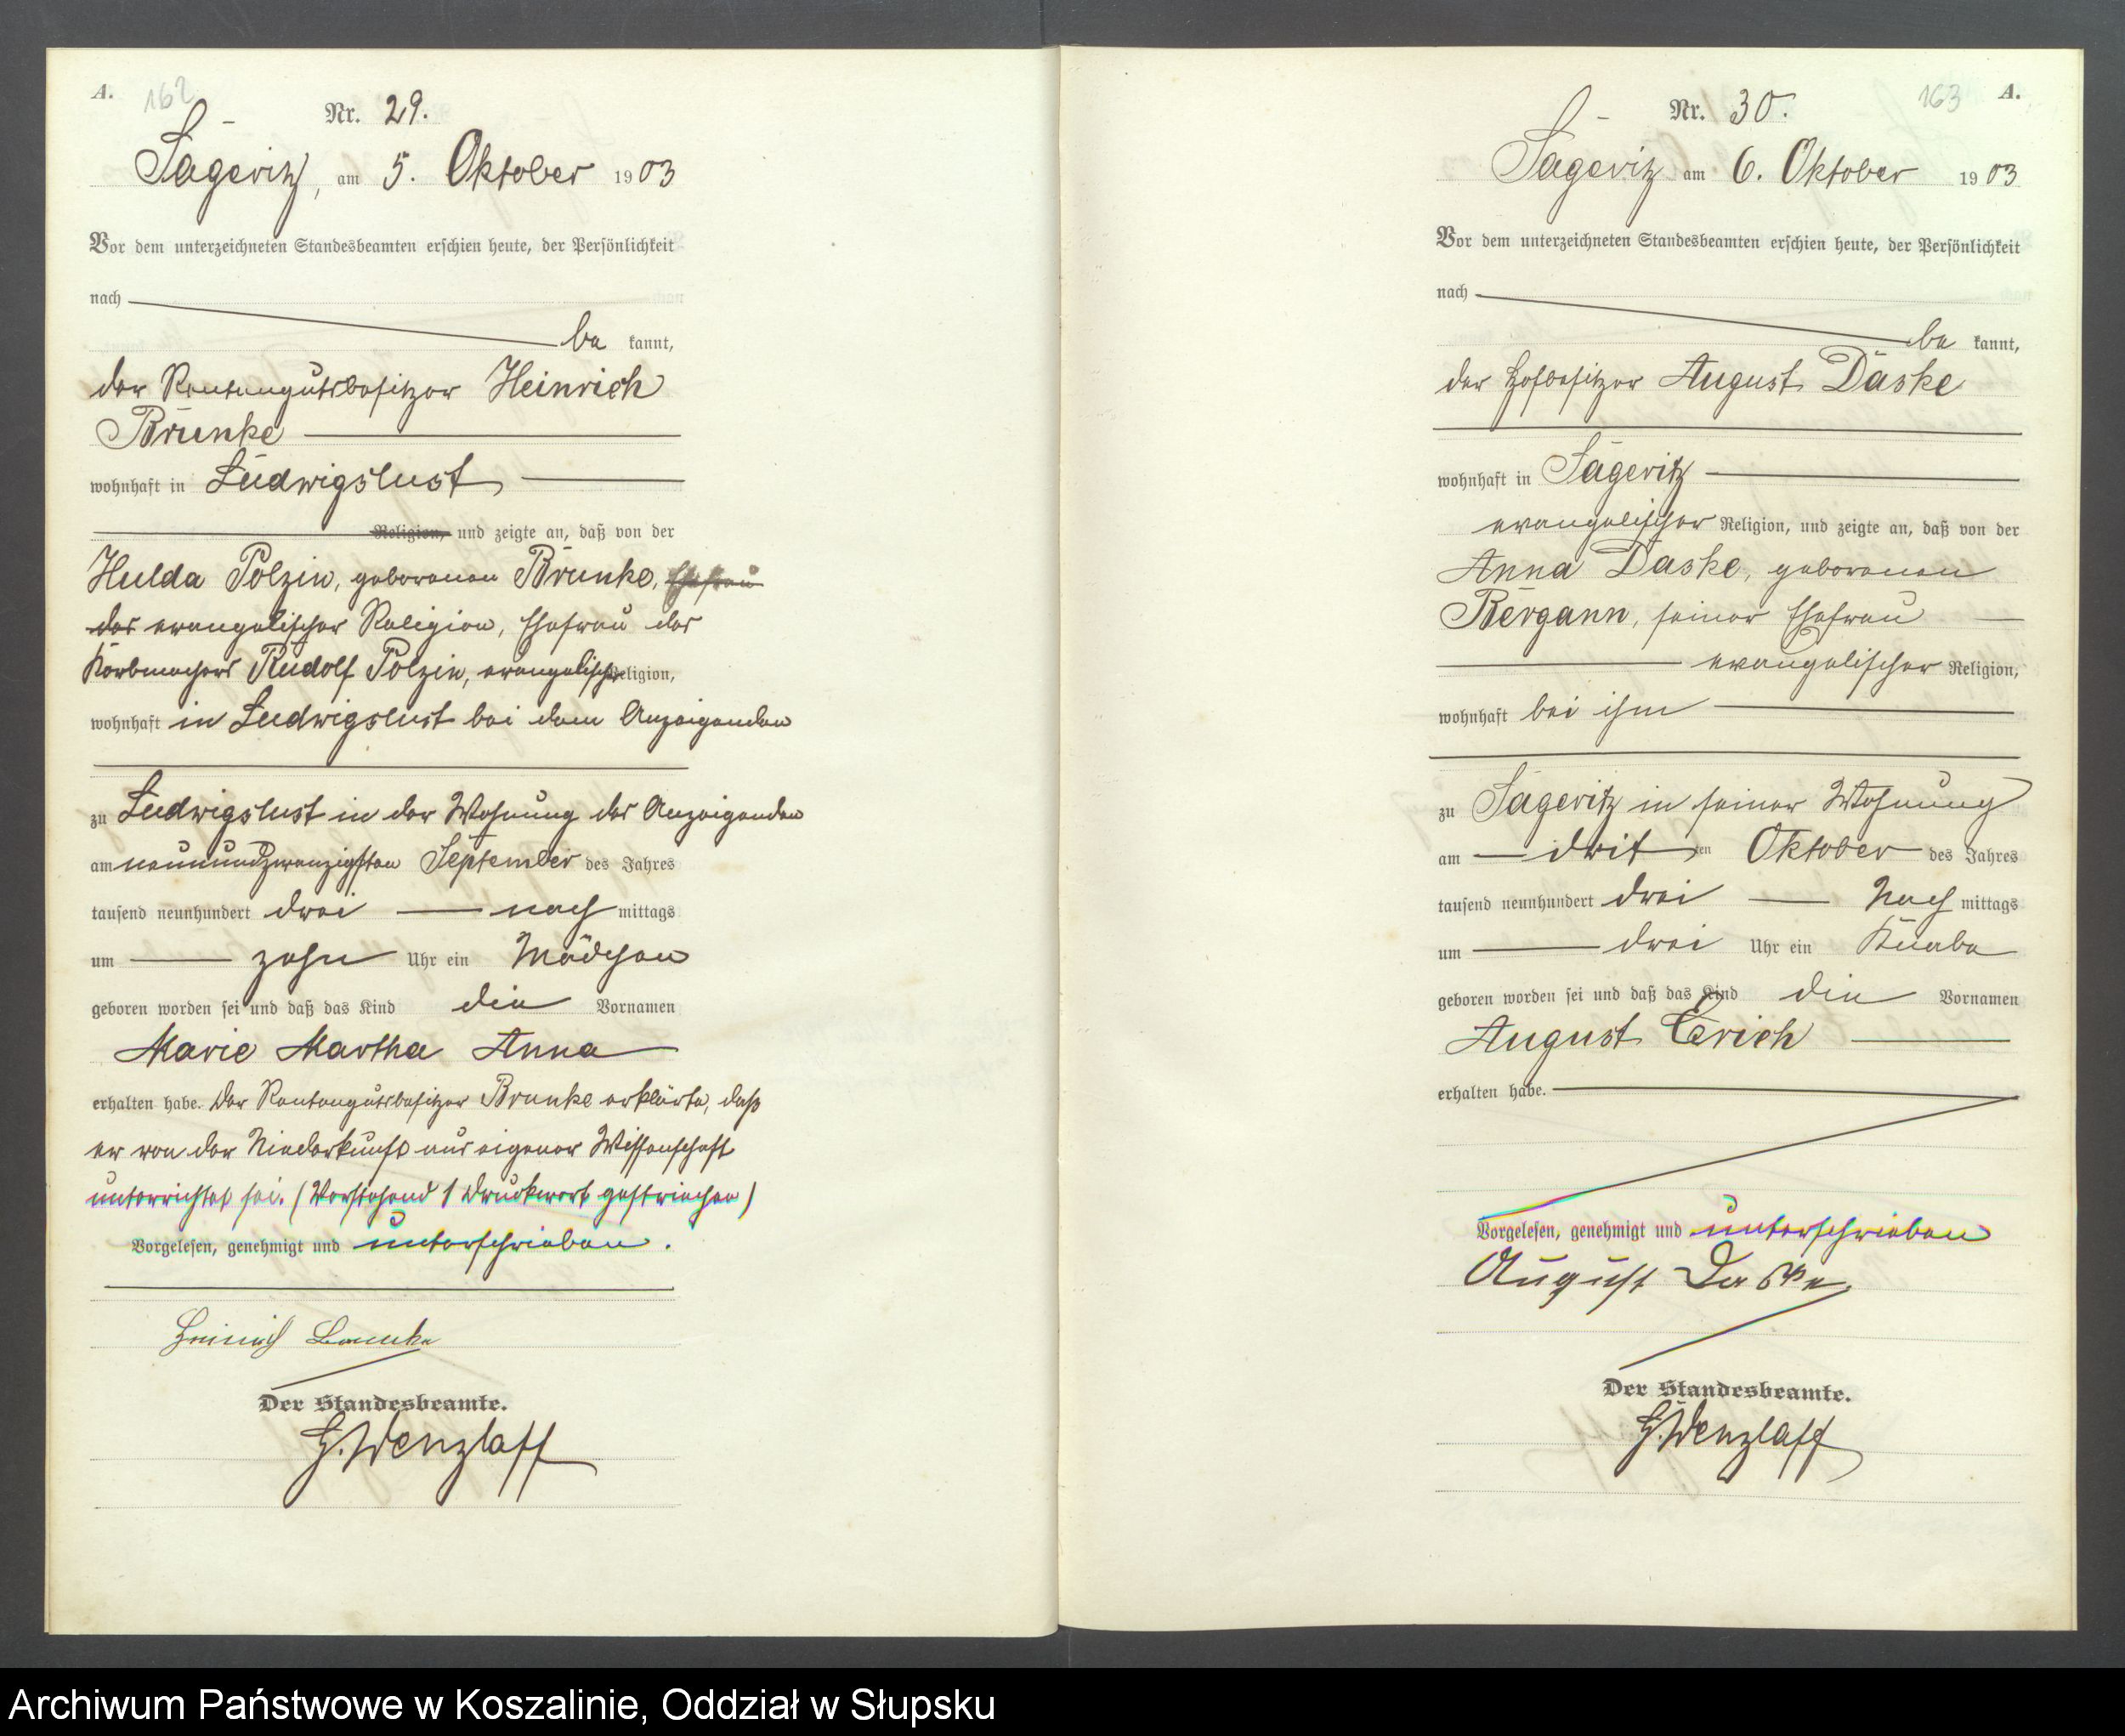 A.
162
Nr. 29.
Sageritz, am 5. Oktober 1903
Vor dem unterzeichneten Standesbeamten erschien heute, der Persönlichkeit
nach
be kannt,
der Rentengutsbesitzer Heinrich
Brunke
wohnhaft in Ludwigslust
Religion, und zeigte an, daß von der
Hulda Polzin, geborenen Brunke, Ehefrau
des evangelischer Religion, Ehefrau des
Korbmachers Rudolf Polzin, evangelischer Religion,
wohnhaft in Ludwigslust bei dem Anzeigenden
zu Ludwigslust in der Wohnung des Anzeigenden
am neunundzwanzigsten September des Jahres
tausend neunhundert drei nach mittags
um zehn Uhr ein Mädchen
geboren worden sei und daß das Kind die Vornamen
Marie Martha Anna
erhalten habe. Der Rentengutsbesitzer Brunke erklärte, daß
er von der Niederkunft aus eigener Wissenschaft
unterrichtet sei. (Vorstehend 1 Druckwort gestrichen)
Vorgelesen, genehmigt und unterschrieben.
Heinrich Brunke
Der Standesbeamte.
H. Wenzlaff
163
A.
Nr. 30.
Sageritz am 6. Oktober 1903
Vor dem unterzeichneten Standesbeamten erschien heute, der Persönlichkeit
nach
be kannt,
der Hofbesitzer August Daske
wohnhaft in Sageritz
evangelischer Religion, und zeigte an, daß von der
Anna Daske, geborenen
Bergann, seiner Ehefrau
evangelischer Religion,
wohnhaft bei ihm
zu Sageritz in seiner Wohnung
am dritten Oktober des Jahres
tausend neunhundert drei Nach mittags
um drei Uhr ein Knabe
geboren worden sei und daß das Kind die Vornamen
August Erich
erhalten habe.
Vorgelesen, genehmigt und unterschrieben
August Daske
Der Standesbeamte.
H. Wenzlaff
Archiwum Państwowe w Koszalinie, Oddział w Słupsku